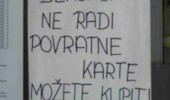 NE RADI
POVRATNE
KARTE
MOŽETE KUPITI